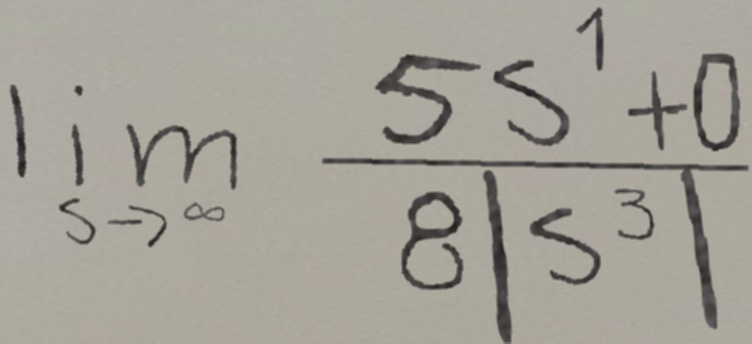 \lim_{s \to \infty} \frac{5s^1+0}{8|s^3|}